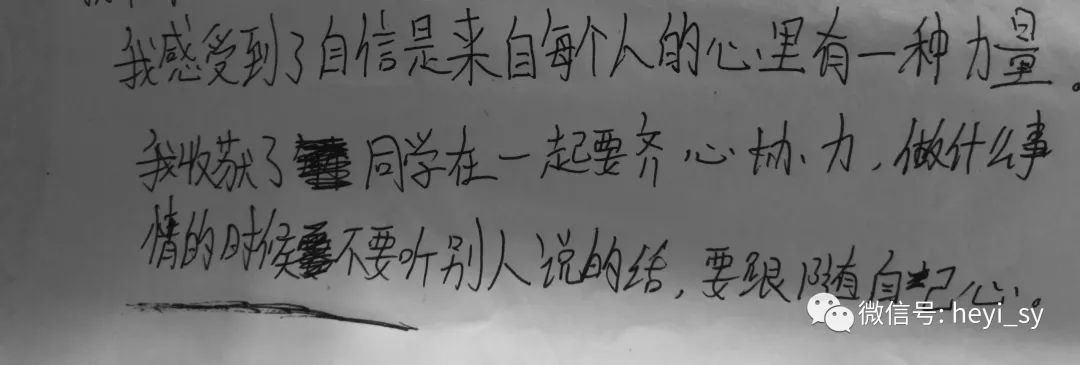 我感受到了自信是来自每个人的心里有一种力量。
我收获了同学在一起要齐心协力,做什么事
情的时候不要听别人说的结,要跟随自己心。
微信号: heyi_sy